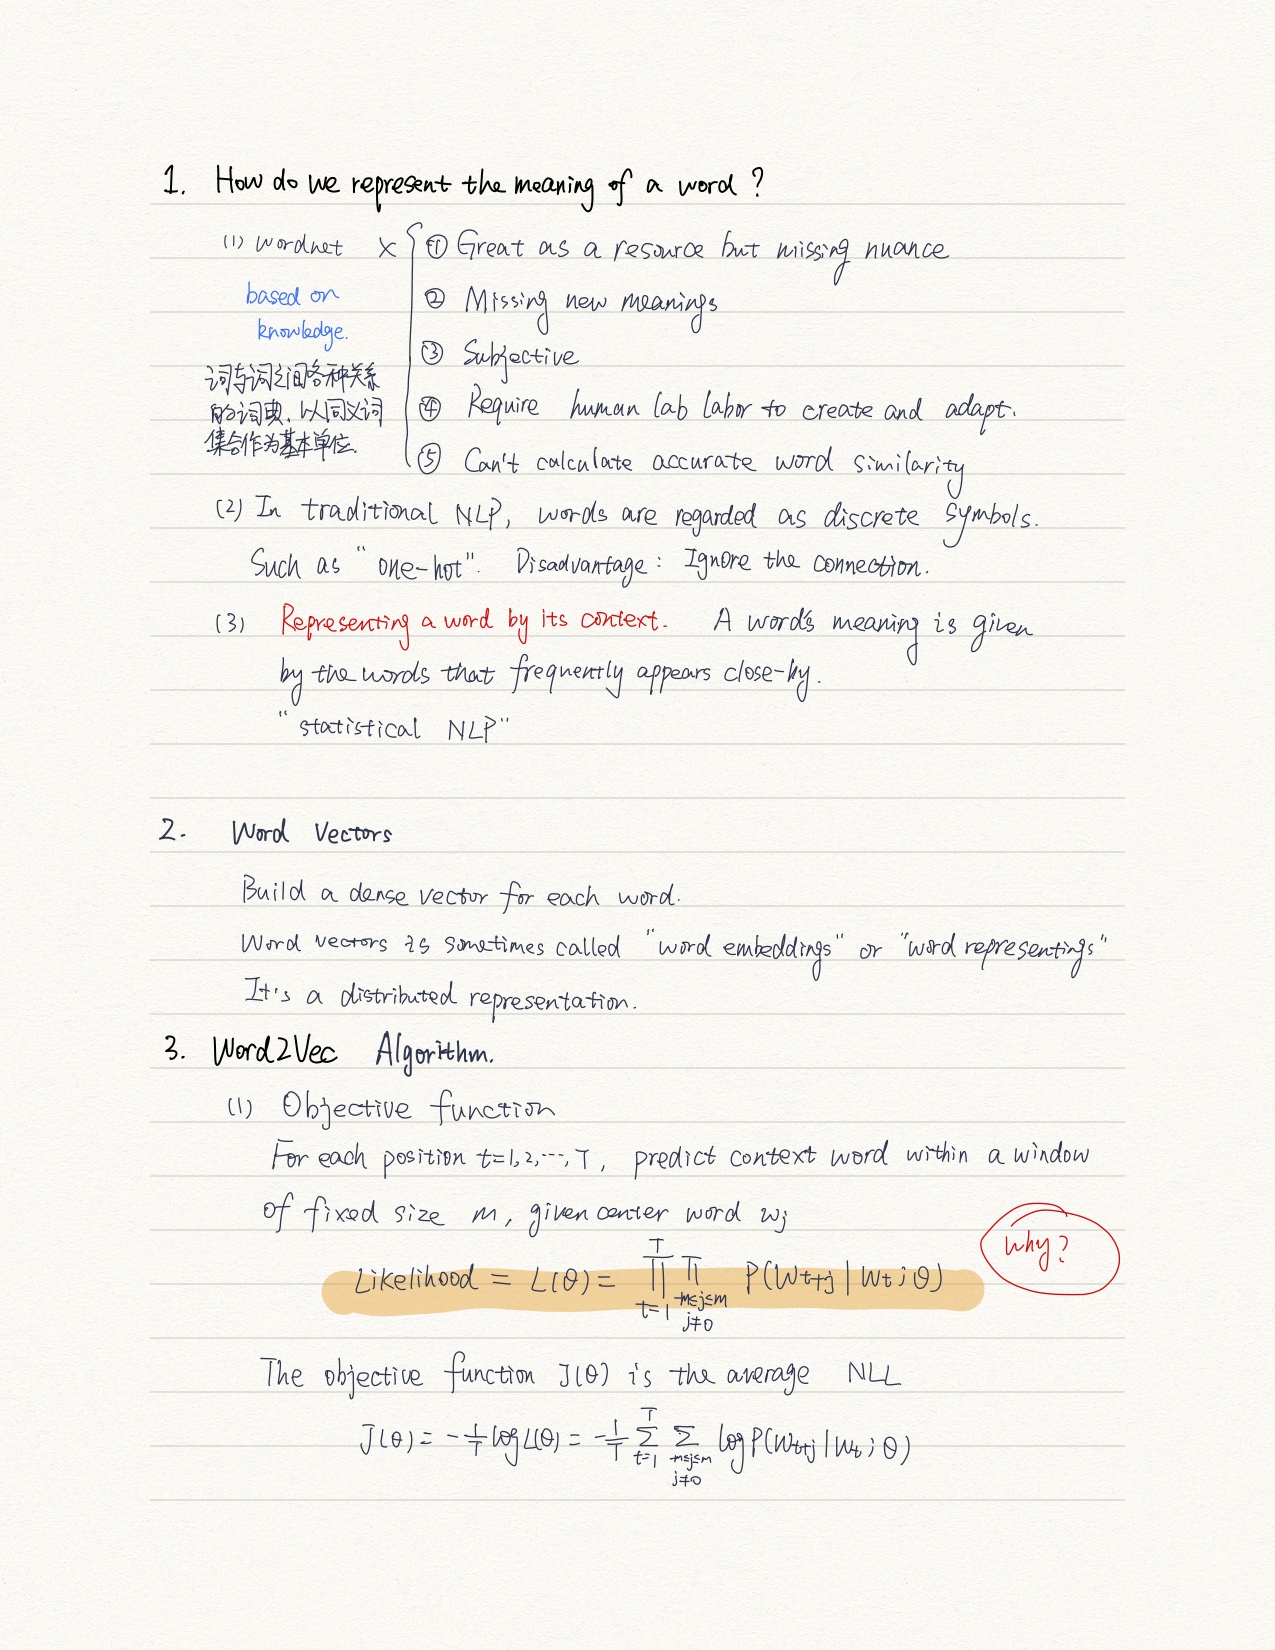 1. How do we represent the meaning of a word ?
(1) wordnet × { ① Great as a resource but missing nuance
based on
knowledge.
② Missing new meanings
③ Subjective
④ Require human lab labor to create and adapt.
⑤ Can't calculate accurate word similarity
词与词之间各种关系
的词典,以同义词
集合作为基本单位.
(2) In traditional NLP, words are regarded as discrete symbols.
Such as "one-hot". Disadvantage: Ignore the connection.
(3) Representing a word by its context. A word's meaning is given
by the words that frequently appears close-by.
"statistical NLP"
2. Word Vectors
Build a dense vector for each word.
Word vectors is sometimes called "word embeddings" or "word representings"
It's a distributed representation.
3. Word2Vec Algorithm.
(1) Objective function
For each position t=1,2,…,T, predict context word within a window
of fixed size m, given center word wj
Likelihood = L(θ) = ∏_{t=1}^{T} ∏_{-m≤j≤m, j≠0} P(Wt+j | Wt ; θ)
why?
The objective function J(θ) is the average NLL
J(θ) = -1/T log L(θ) = -1/T ∑_{t=1}^{T} ∑_{-m≤j≤m, j≠0} log P(Wt+j | Wt ; θ)